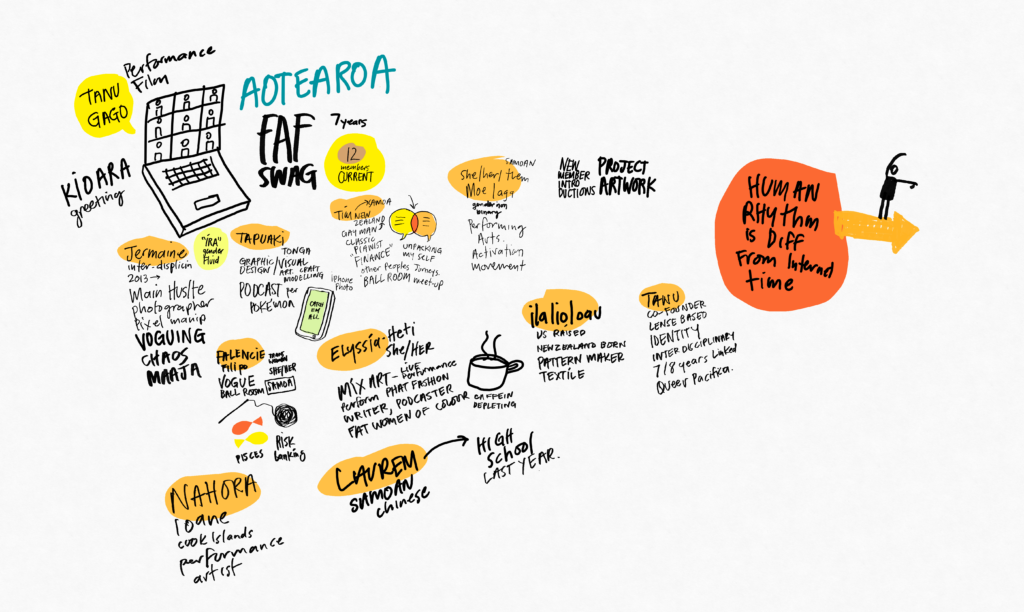 Performance
Film
TANU
GAGO
KIDARA
greeting
AOTEAROA
FAF
SWAG
7 years
12
members
CURRENT
SAMOAN
she/her/them
Moe laga
gender non
binary
Performing
Arts.
Activation
Movement
NEW
MEMBER
INTRO
DUCTIONS
PROJECT
ARTWORK
HUMAN
RHYTHM
is DIFF
From Internet
time
Jermaine
inter-displicin
2013 →
Main Huslte
photographer
Pixel manip
VOGUING
CHAOS
MAAJA
"IRA"
gender
Fluid
TAPUAKI
TONGA
GRAPHIC/VISUAL
DESIGN ART. CRAFT
MODELLING
PODCAST per
POKE'MON
iPhone
Photo
CATCH
EM
ALL
SAMOA
TIM NEW
ZEALAND
GAY MAN
CLASSIC
PIANIST
FINANCE
UNPACKING
MY SELF
other Peoples Jorneys.
BALL ROOM meet-up
FALENCIE
Filipo
TRANS
WOMAN
SHE/HER
VOGUE
BALL ROOM
SAMOA
PISCES
Risk
banking
ELYSSIA-Heti
She/HER
MIX ART - LIVE
Performance
perform PHAT FASHION
WRITER, PODCASTER
FAT WOMEN OF COLOUR
CAFFEIN
DEPLETING
ilalioloau
US RAISED
NEWZEALAND BORN
PATTERN MAKER
TEXTILE
TANU
CO-FOUNDER
LENSE BASED
IDENTITY
INTER DISCIPLINARY
7/8 years Linked
Queer Pacifica.
NAHORA
Ioane
COOK ISLANDS
performance
artist
LAUREM
SAMOAN
chinese
HIGH
School
LAST YEAR.